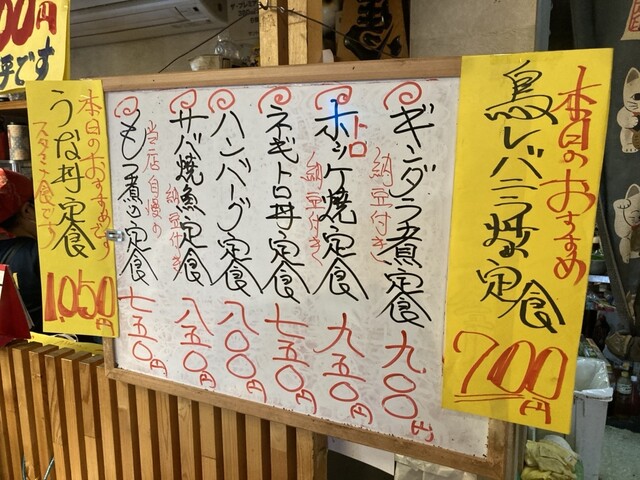 00円
平です
本日のおすすめ
鳥レバニラ炒め定食
700円
ギンダラ煮定食
納豆付き
九〇〇円
トロ
ホッケ焼定食
納豆付き
九五〇円
ネギトロ丼定食
七五〇円
ハンバーグ定食
八〇〇円
サバ焼魚定食
納豆付き
八五〇円
もつ煮込定食
当店自慢の
七五〇円
本日のおすすめです
うな丼定食
スタミナ食です
1,050円